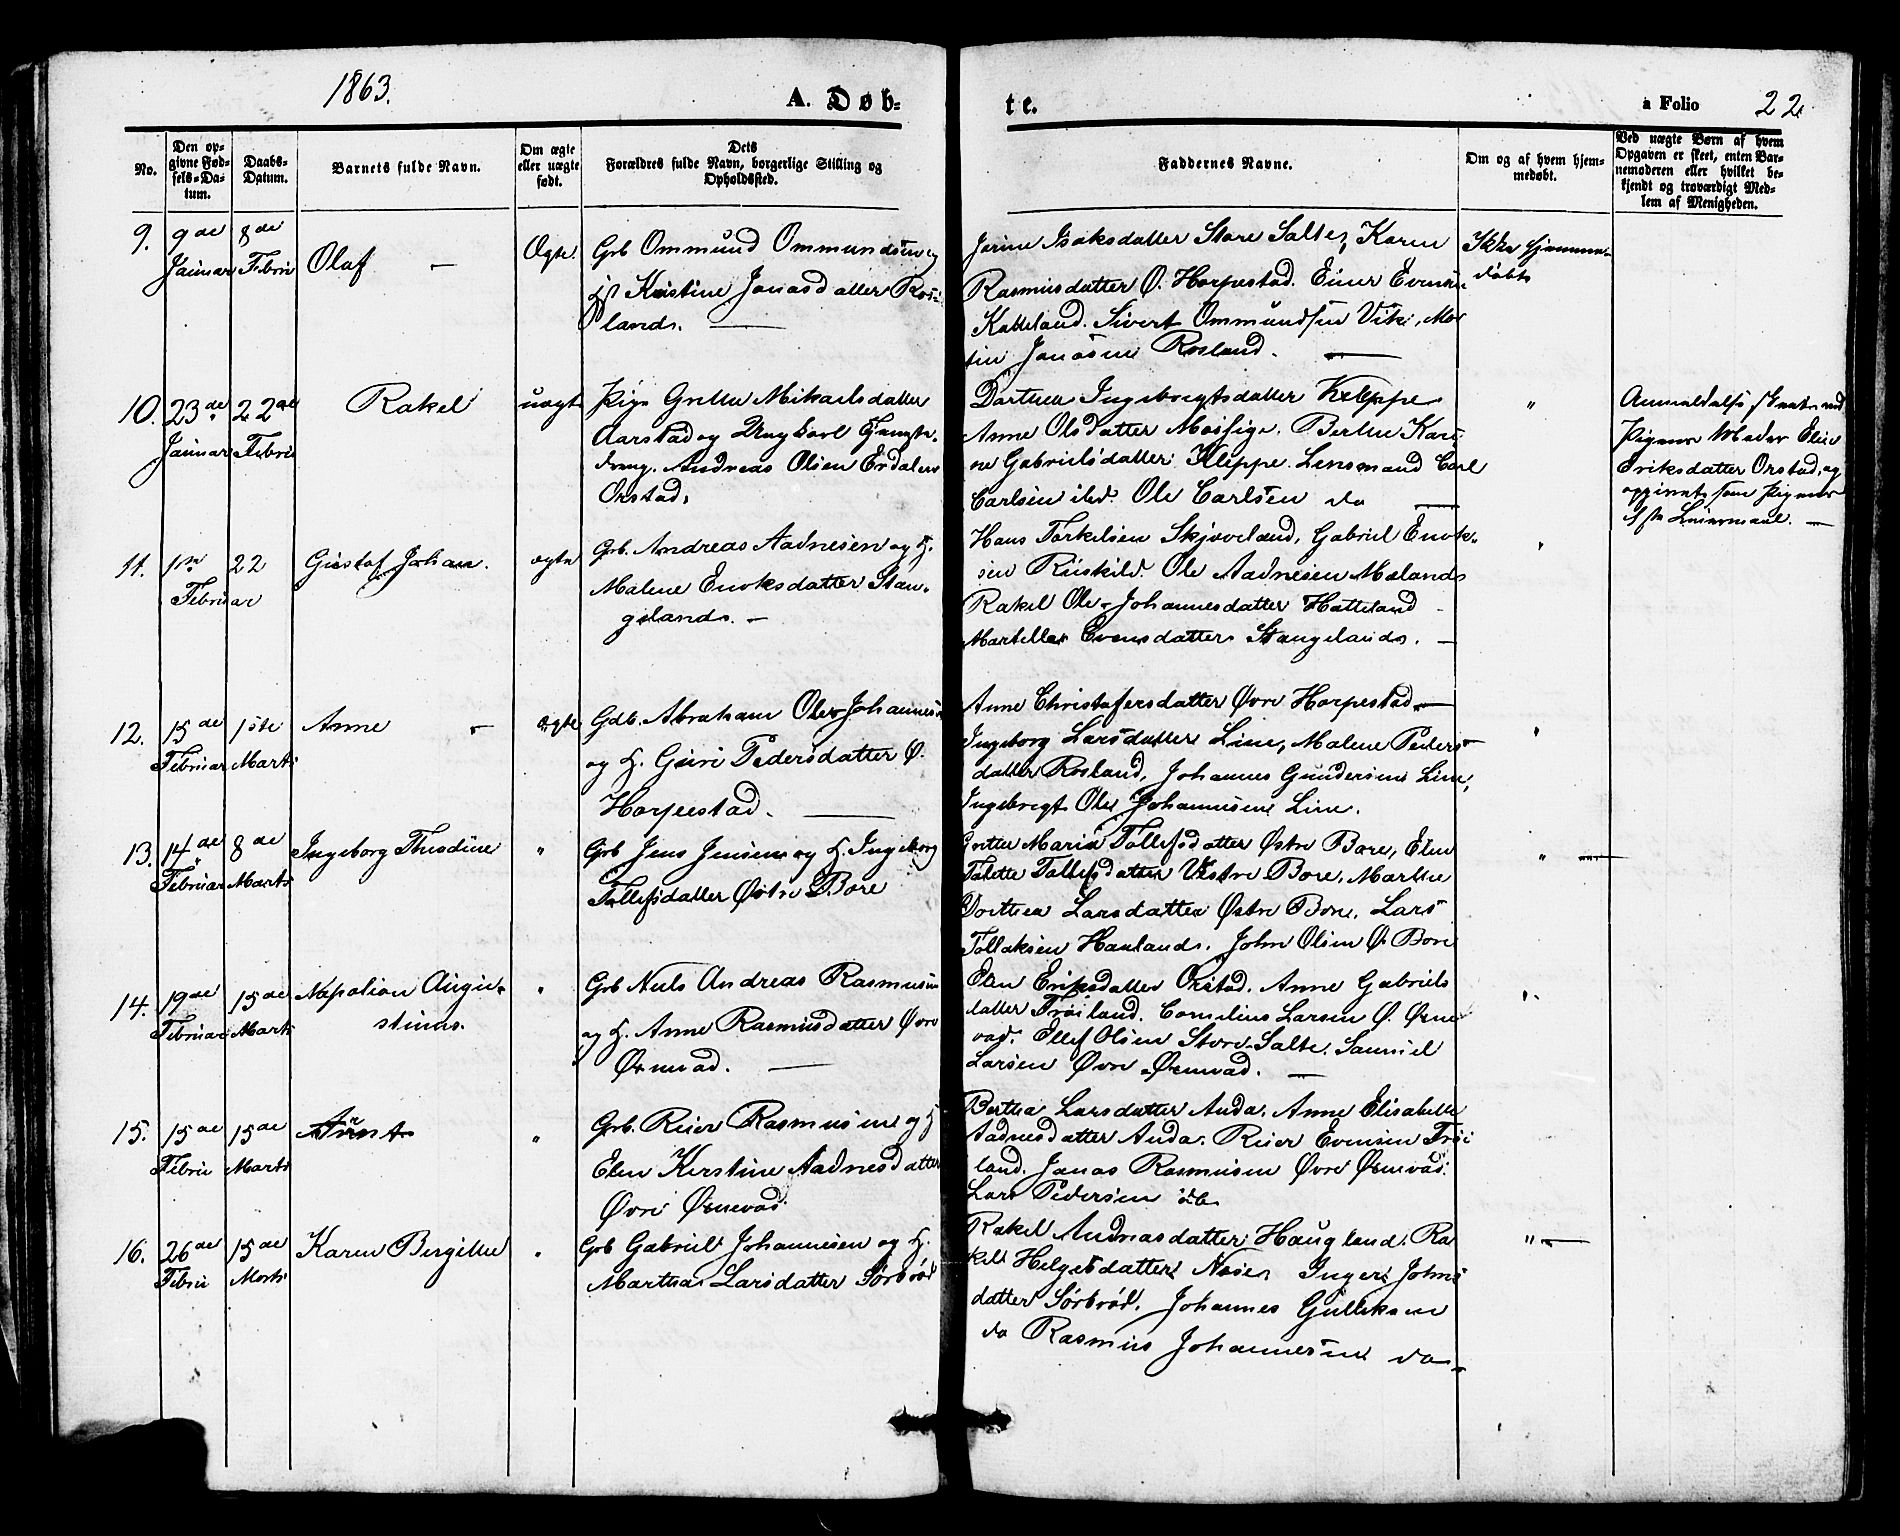 1863.
A. Døb-
te.
a Folio 22.
No.
Den op-
givne Fød-
sels-Da-
tum.
Daabs-
Datum.
Barnets fulde Navn.
Om ægte
eller uægte
født.
Dets
Forældres fulde Navn, borgerlige Stilling og
Opholdssted.
Faddernes Navne.
Om og af hvem hjem-
medøbt.
Ved uægte Børn af hvem
Opgaven er skeet, enten Bar-
nemoderen eller hvilket be-
kjendt og troværdigt Med-
lem af Menigheden.
9.
9de
Januar
8de
Febru
Olaf —
Ægte
Grb Ommund Ommundsen og
H. Kristine Jonasdatter Ros-
land. —
Jorine Isaksdatter Store Salte, Karen
Rasmusdatter Ø. Horpestad. Einer Evensen
Katteland. Sivert Ommundsen Vik, Mor
ten Jonasen Rosland. —
Ikke hjemme-
døbt
10.
23de
Januar
22de
Febru
Rakel
uægte
Pige Grethe Mikaelsdatter
Aarstad og Ungkarl Tjeneste-
dreng Andreas Olsen Erdalen
Orstad.
Dorthea Ingebregtsdatter Kleppe
Anne Olsdatter Mossige. Berthe Kari-
ne Gabrielsdatter Kleppe. Lensmand Carl
Carlsen ibd. Ole Carlsen do —
"
Anmeldelse skeet ved
Pigens Moder Elen
Eriksdatter Orstad, og
opgivet som Pigens
1ste Leiermaal. —
11.
1ste
Februar
22
Gustaf Johan.
ægte
Grb. Andreas Aadnesen og H.
Malene Enoksdatter Stan-
geland. —
Hans Torkelsen Skjæveland, Gabriel Enok-
sen Riskild. Ole Aadnesen Mæland
Rakel Ole-Johannesdatter Hatteland
Marthea Evensdatter Stangeland. —
"
12.
15de
Februar
1ste
Marts
Anne —
ægte
Gdb. Abraham Ole Johannesen
og H. Guri Pedersdatter Ø.
Horpestad. —
Anne Christofersdatter Øvre Horpestad —
Ingeborg Larsdatter Line, Malene Peders-
datter Rosland, Johannes Gundersen Line,
Ingebregt Ole Johannesen Line.
"
13.
14de
Februar
8de
Marts
Ingeborg Theodine
"
Grb Jens Jensen og H. Ingeborg
Tollefsdatter Østre Bore
Grethe Maria Tollefsdatter Østre Bore, Elen
Talette Tollefsdatter Vestre Bore, Marthe
Dorthea Larsdatter Østre Bore, Lars
Tollaksen Hauland, John Olsen Ø. Bore
" —
14.
19de
Februar
15de
Marts
Napolion Augu-
stinus.
"
Grb Nils Andreas Rasmusen
og H. Anne Rasmusdatter Øvre
Ørnevad. —
Elen Eriksdatter Orstad. Anne Gabriels
datter Frøiland. Cornelius Larsen Ø. Ørne
vad. Ellef Olsen Store-Salte. Samuel
Larsen Øvre Ørnevad. —
"
15.
15de
Febru
15de
Marts
"
Grb. Reier Rasmusen og H
Elen Kirstine Aadnesdatter
Øvre Ørnevad
Berthea Larsdatter Anda. Anne Elisabeth
Aadnesdatter Anda. Reier Evensen Frøi
land. Jonas Rasmusen Øvre Ørnevad.
Lars Pedersen ib
16.
26de
Febru
15de
Marts
Karen Bergithe
"
Grb Gabriel Johannesen og H.
Martha Larsdatter Sørbrød
Rakel Andreasdatter Haugland. Ra
kel Helgesdatter Næse, Inger Johns
datter Sørbrød. Johannes Gulliksen
do Rasmus Johannesen do —
" —